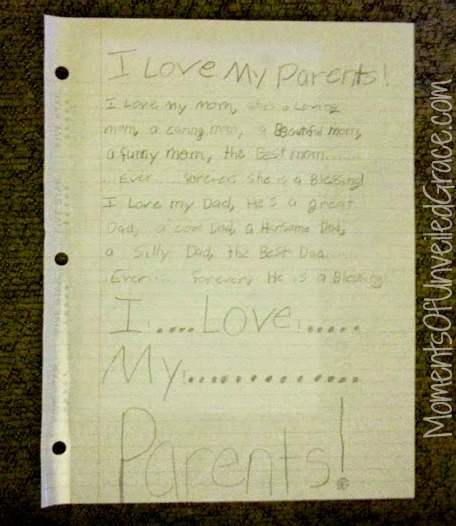 I Love My Parents!
I Love my mom, she's a Loving
mom, a caring mom, a Beautiful mom,
a funny mom, the Best mom......
...Ever.....Forever, She is a Blessing!
I Love my Dad, He's a great
Dad, a cool Dad, a Hansome Dad,
a Silly Dad, the Best Dad.....
Ever.... Forever, He is a Blessing!
I.....Love......
My..............
Parents!
MomentsOfUnveiledGrace.com